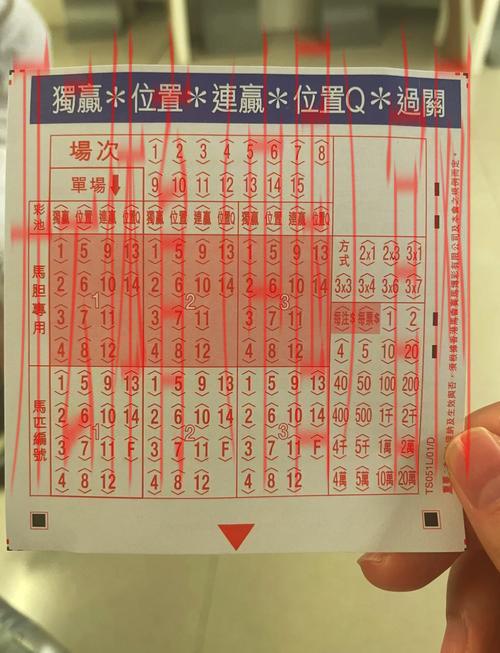 獨贏*位置*連贏*位置Q*過關
場次 1 2 3 4 5 6 7 8
單場 9 10 11 12 13 14 15
彩池 獨贏 位置 連贏 位置Q 獨贏 位置 連贏 位置Q 獨贏 位置 連贏 位置Q
馬胆專用 1 5 9 13 1 5 9 13 1 5 9 13 方式 2x1 2x3 3x1
2 6 10 14 2 6 10 14 2 6 10 14 3x3 3x4 3x6 3x7
1 2 3
3 7 11 3 7 11 3 7 11 每注$ 每票$ 1 2
4 8 12 4 8 12 4 8 12 4 5 10 20
馬匹編號 1 5 9 13 1 5 9 13 1 5 9 13 40 50 100 200
2 6 10 14 2 6 10 14 2 6 10 14 400 500 1千 2千
1 2 3
3 7 11 F 3 7 11 F 3 7 11 F 4千 5千 1萬 2萬
4 8 12 4 8 12 4 8 12 4萬 5萬 10萬 20萬
TS051L/01/D